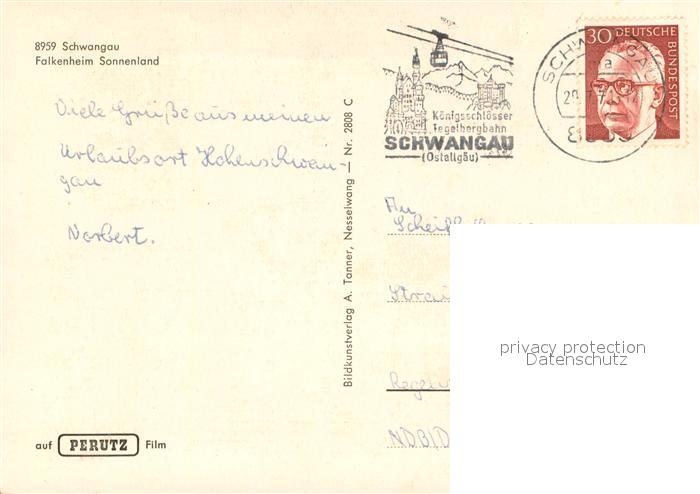 8959 Schwangau
Falkenheim Sonnenland
Viele Grüße aus meinen
Urlaubsort Hohenschwan-
gau
Norbert.
auf PERUTZ Film
Bildkunstverlag A. Tanner, Nesselwang — Nr. 2808 C
Königsschlösser
Tegelbergbahn
SCHWANGAU
(Ostallgäu)
SCHWANGAU
a
30 DEUTSCHE
BUNDESPOST
An
privacy protection
Datenschutz